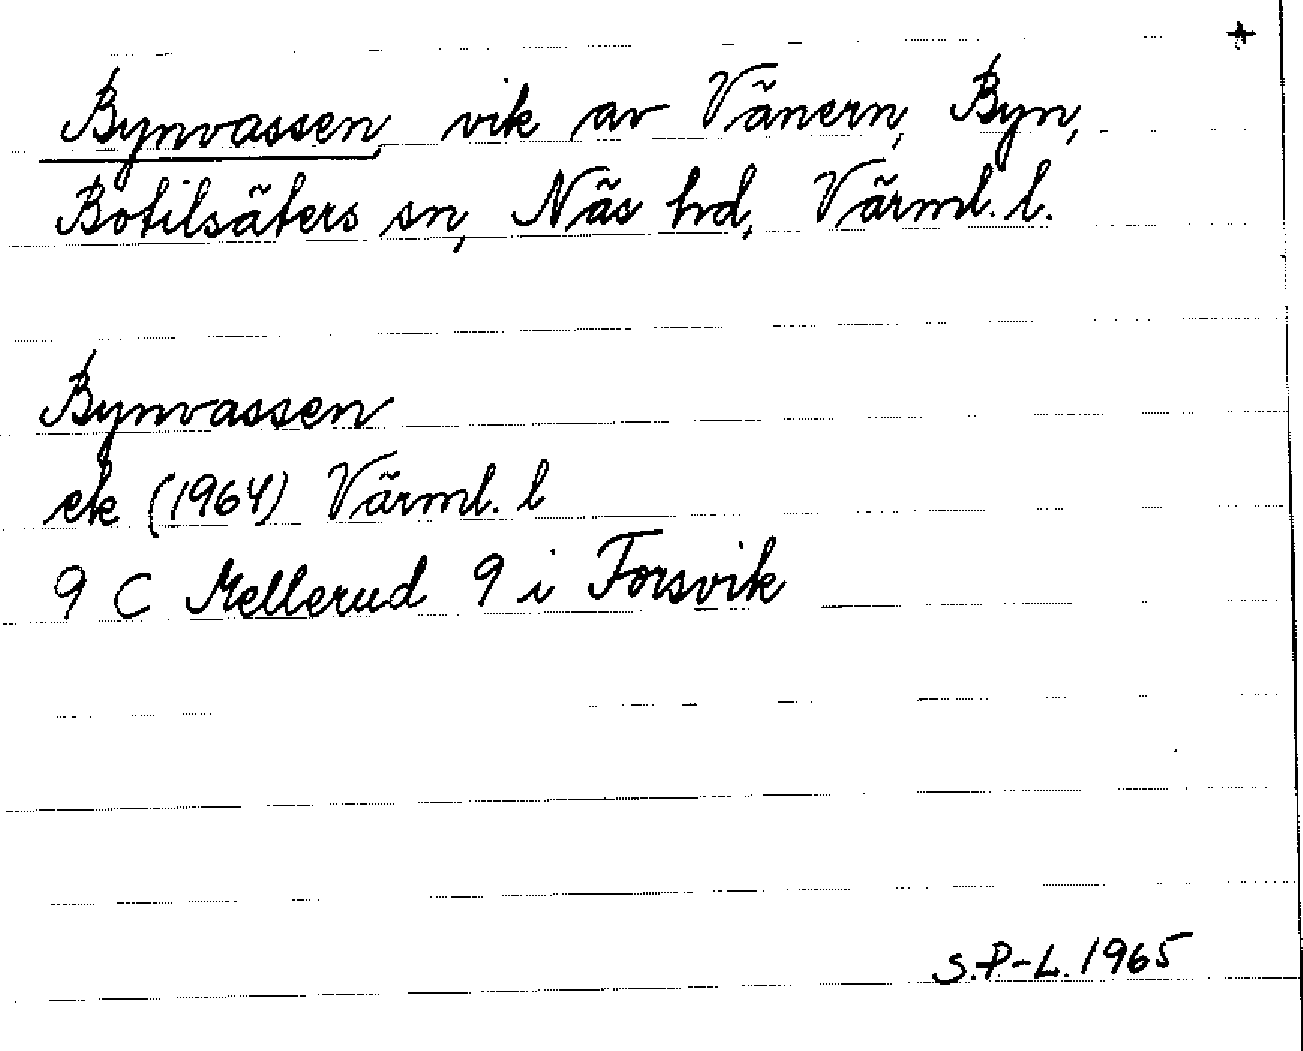 +
Bynvassen, vik av Vänern, Byn,
Botilsäters sn, Näs hd, Värml. l.
Bynvassen
ek (1964) Värml. l
9 C Mellerud 9 i Forsvik
S.P-L. 1965